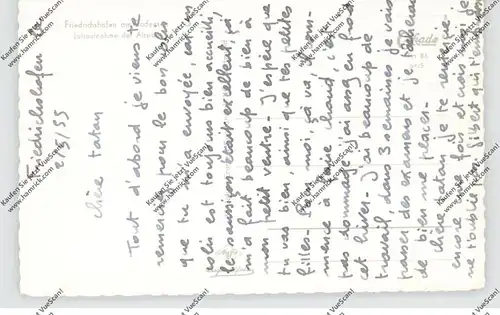 Friedrichshafen am Bodensee
Friedrichshafen le
2/5/55
chère tatan
Tout d'abord je viens te re
mercier pour le bon colis
que tu m'a envoyée, ce
colis est toujours bien accueilli,
le saussisson était excellent, ça
m'a fait beaucoup de bien à
mon petit ventre. J'espère que
tu vas bien, ainsi que tes petites
filles. Pour moi, ça va, l'on com-
mence à avoir chaud, c'est
pas dommage, j'ai assez eu froid
cet hiver. J'ai beaucoup de
travail, dans 3 semaines je vais
passer des examens et je
de bien me placer.
chère tatan je te remercie
encore une fois et crois que je
ne t'oublie pas. Gilbert qui t'